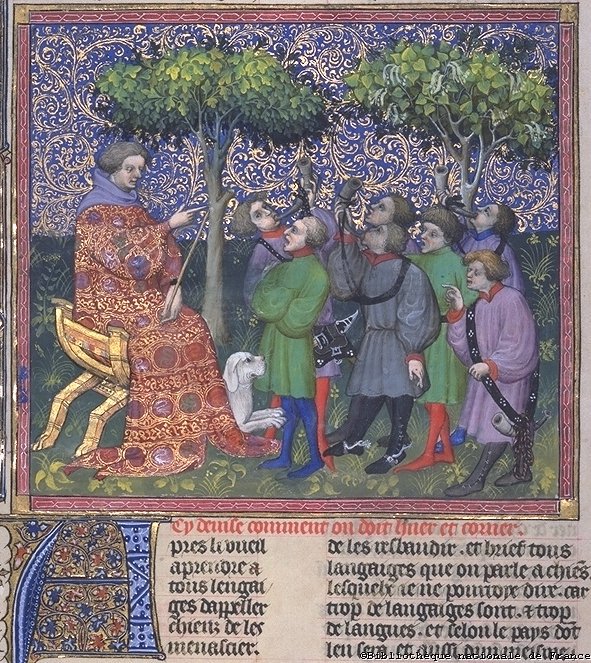 Cy devise comment on doit huer et corner.
Apres li vueil
aprendre a
tous lengai
ges dappeller
chienz de les
menascier.
de les resbaudir. et brief tous
langaiges que on parle a chiẽs.
lesquelx ie ne pourroye dire car
trop de langaiges sont. & trop
de langues. et selon le pays dõt
len sera. et aussi dun
©Bibliothèque nationale de France